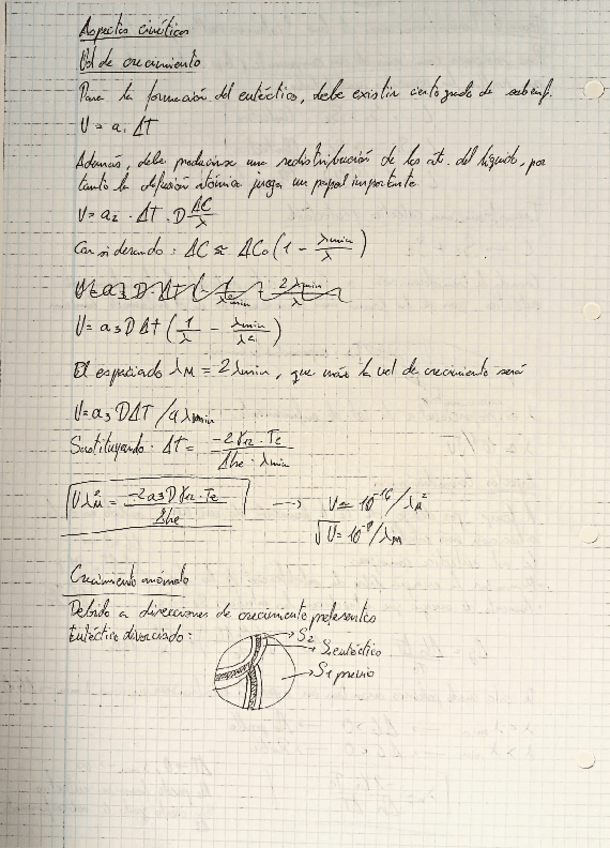 Aspectos cinéticos
Vel de crecimiento
Para la formación del eutéctico, debe existir cierto grado de subenf.
V = a₁ ΔT
Además, debe producirse una redistribución de los át. del líquido, por
tanto la difusión atómica juega un papel importante.
V = a₂ · ΔT · D ΔC/λ
Considerando: ΔC ≈ ΔC₀ (1 - λmin/λ)
V = a₃ D ΔT (1/λ - λmin/λ²)
El espaciado λM = 2λmin, que la vel de crecimiento será
V = a₃ D ΔT / 4 λmin
Sustituyendo: ΔT = -2 γ₁₂ · Te / Δhe · λmin
V λ²M = -2 a₃ D γ₁₂ · Te / 8he → V ≈ 10⁻¹⁶/λM²
√V = 10⁻⁸/λM
Crecimiento anómalo
Debido a direcciones de crecimiento preferentes
Eutéctico divorciado:
S₂
S₁ eutéctico
S₁ previo